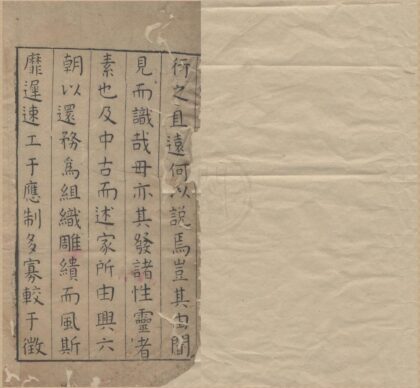 衍之且遠何以說焉豈其由聞
見而識哉毋亦其發諸性靈者
素也及中古而述家所由興六
朝以還務爲組織雕繢而風斯
靡遲速工于應制多寡較于徵